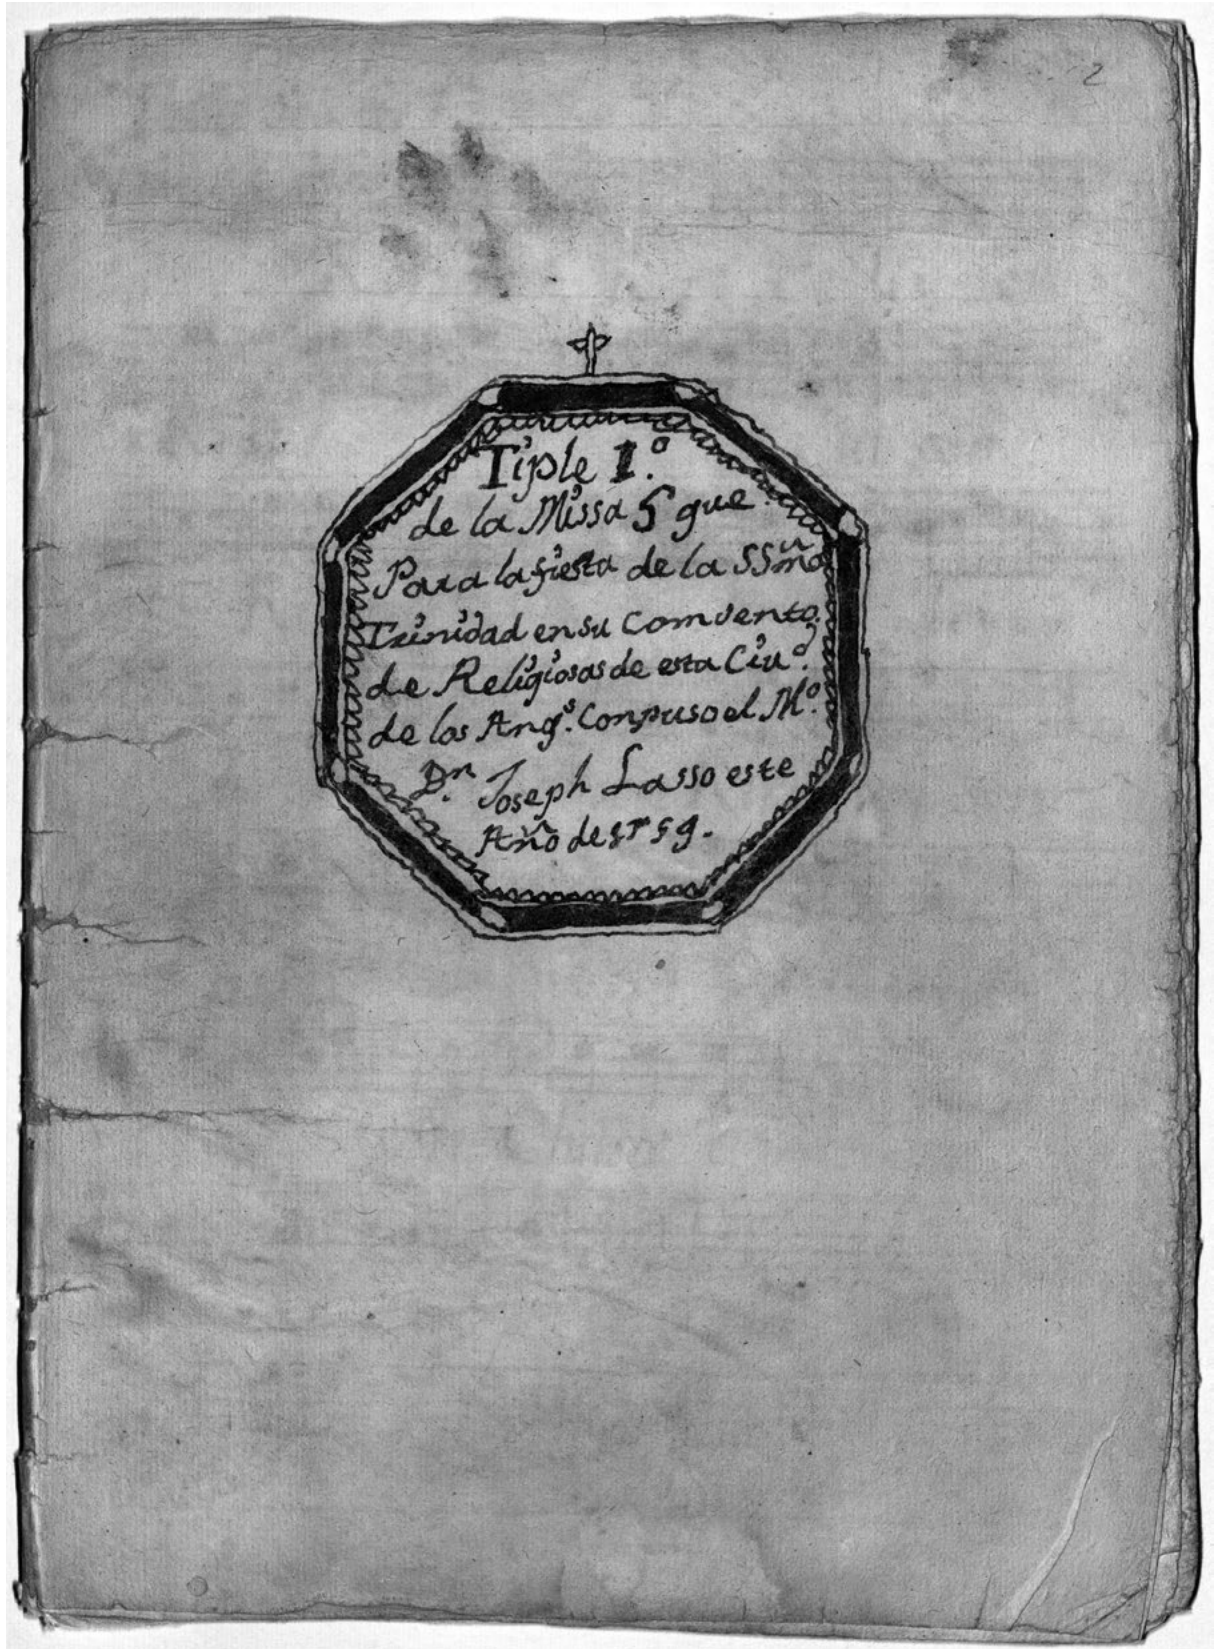 2
Tiple 1.º
de la Missa 5 que
Para la fiesta de la SSma
Trinidad en su Comvento
de Religiosas de esta Ciud.
de los Angs. Conpuso el Mo.
Dn. Joseph Lasso este
Año de